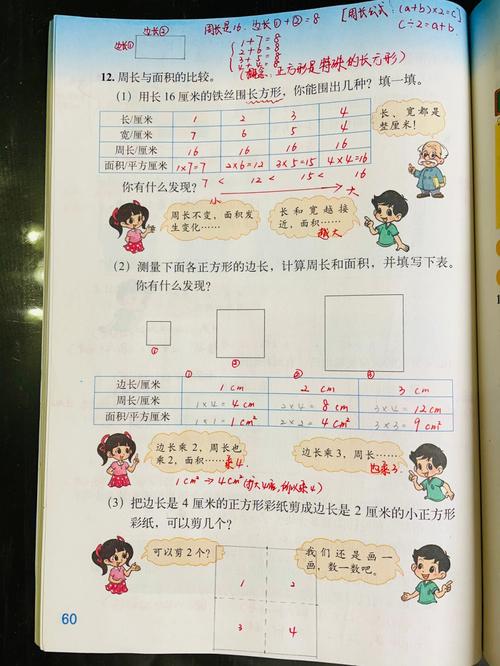 边长②
边长①
周长是16. 边长①+②=8
[周长公式: (a+b)×2=C]
C÷2=a+b
1+7=8
2+6=8
3+5=8
4+4=8
(概念: 正方形是特殊的长方形)
12. 周长与面积的比较。
(1) 用长 16 厘米的铁丝围长方形，你能围出几种？填一填。
长/厘米 1 2 3 4
宽/厘米 7 6 5 4
周长/厘米 16 16 16 16
面积/平方厘米 1×7=7 2×6=12 3×5=15 4×4=16
长、宽都是
整厘米！
你有什么发现？ 7 < 12 < 15 < 16
小 大
周长不变，面积发
生变化……
长和宽越接
近，面积……
越大
(2) 测量下面各正方形的边长，计算周长和面积，并填写下表。
你有什么发现？
① ② ③
① ② ③
边长/厘米 1 cm 2 cm 3 cm
周长/厘米 1×4=4 cm 2×4=8 cm 3×4=12 cm
面积/平方厘米 1×1=1 cm² 2×2=4 cm² 3×3=9 cm²
边长乘 2，周长也
乘 2，面积……乘4.
边长乘 3，周长……
也乘3.
1 cm² → 4 cm²
(3) 把边长是 4 厘米的正方形彩纸剪成边长是 2 厘米的小正方形
彩纸，可以剪几个？
可以剪 2 个？
我们还是画一
画，数一数吧。
1 2
3 4
60